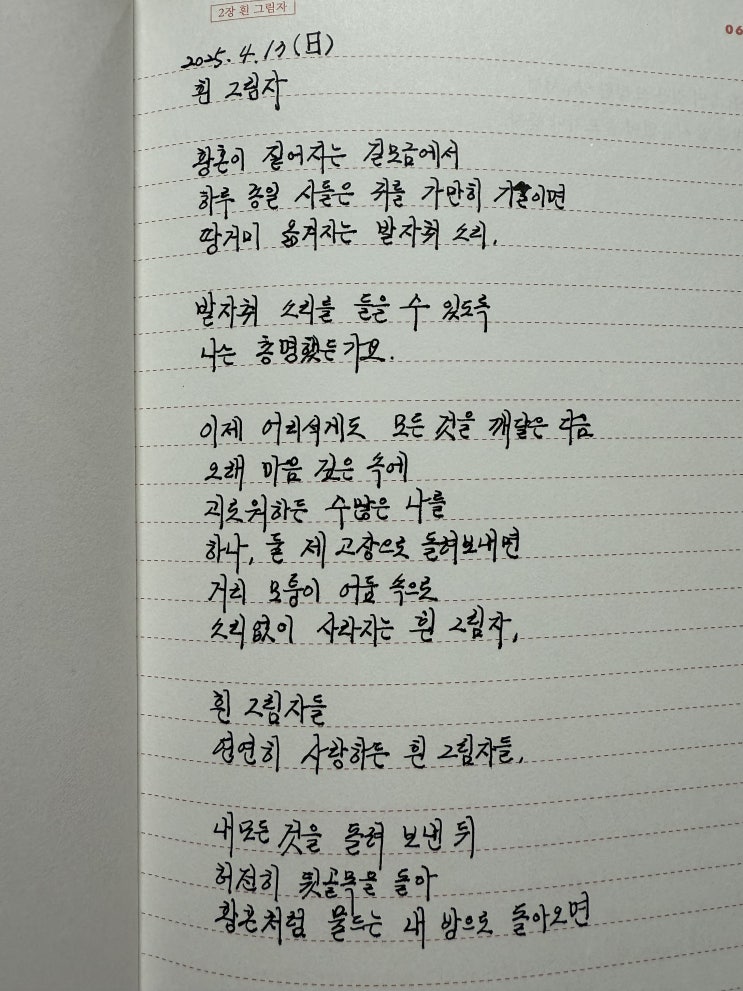 2장 흰 그림자
06
2025. 4. 13 (日)
흰 그림자
황혼이 짙어지는 길모금에서
하루 종일 시들은 귀를 가만히 기울이면
땅거미 옮겨지는 발자취 소리,
발자취 소리를 들을 수 있도록
나는 총명했든가요.
이제 어리석게도 모든 것을 깨달은 다음
오래 마음 깊은 속에
괴로워하든 수많은 나를
하나, 둘 제 고장으로 돌려보내면
거리 모퉁이 어둠 속으로
소리없이 사라지는 흰 그림자,
흰 그림자들
연연히 사랑하든 흰 그림자들,
내 모든 것을 돌려 보낸 뒤
허전히 뒷골목을 돌아
황혼처럼 물드는 내 방으로 돌아오면